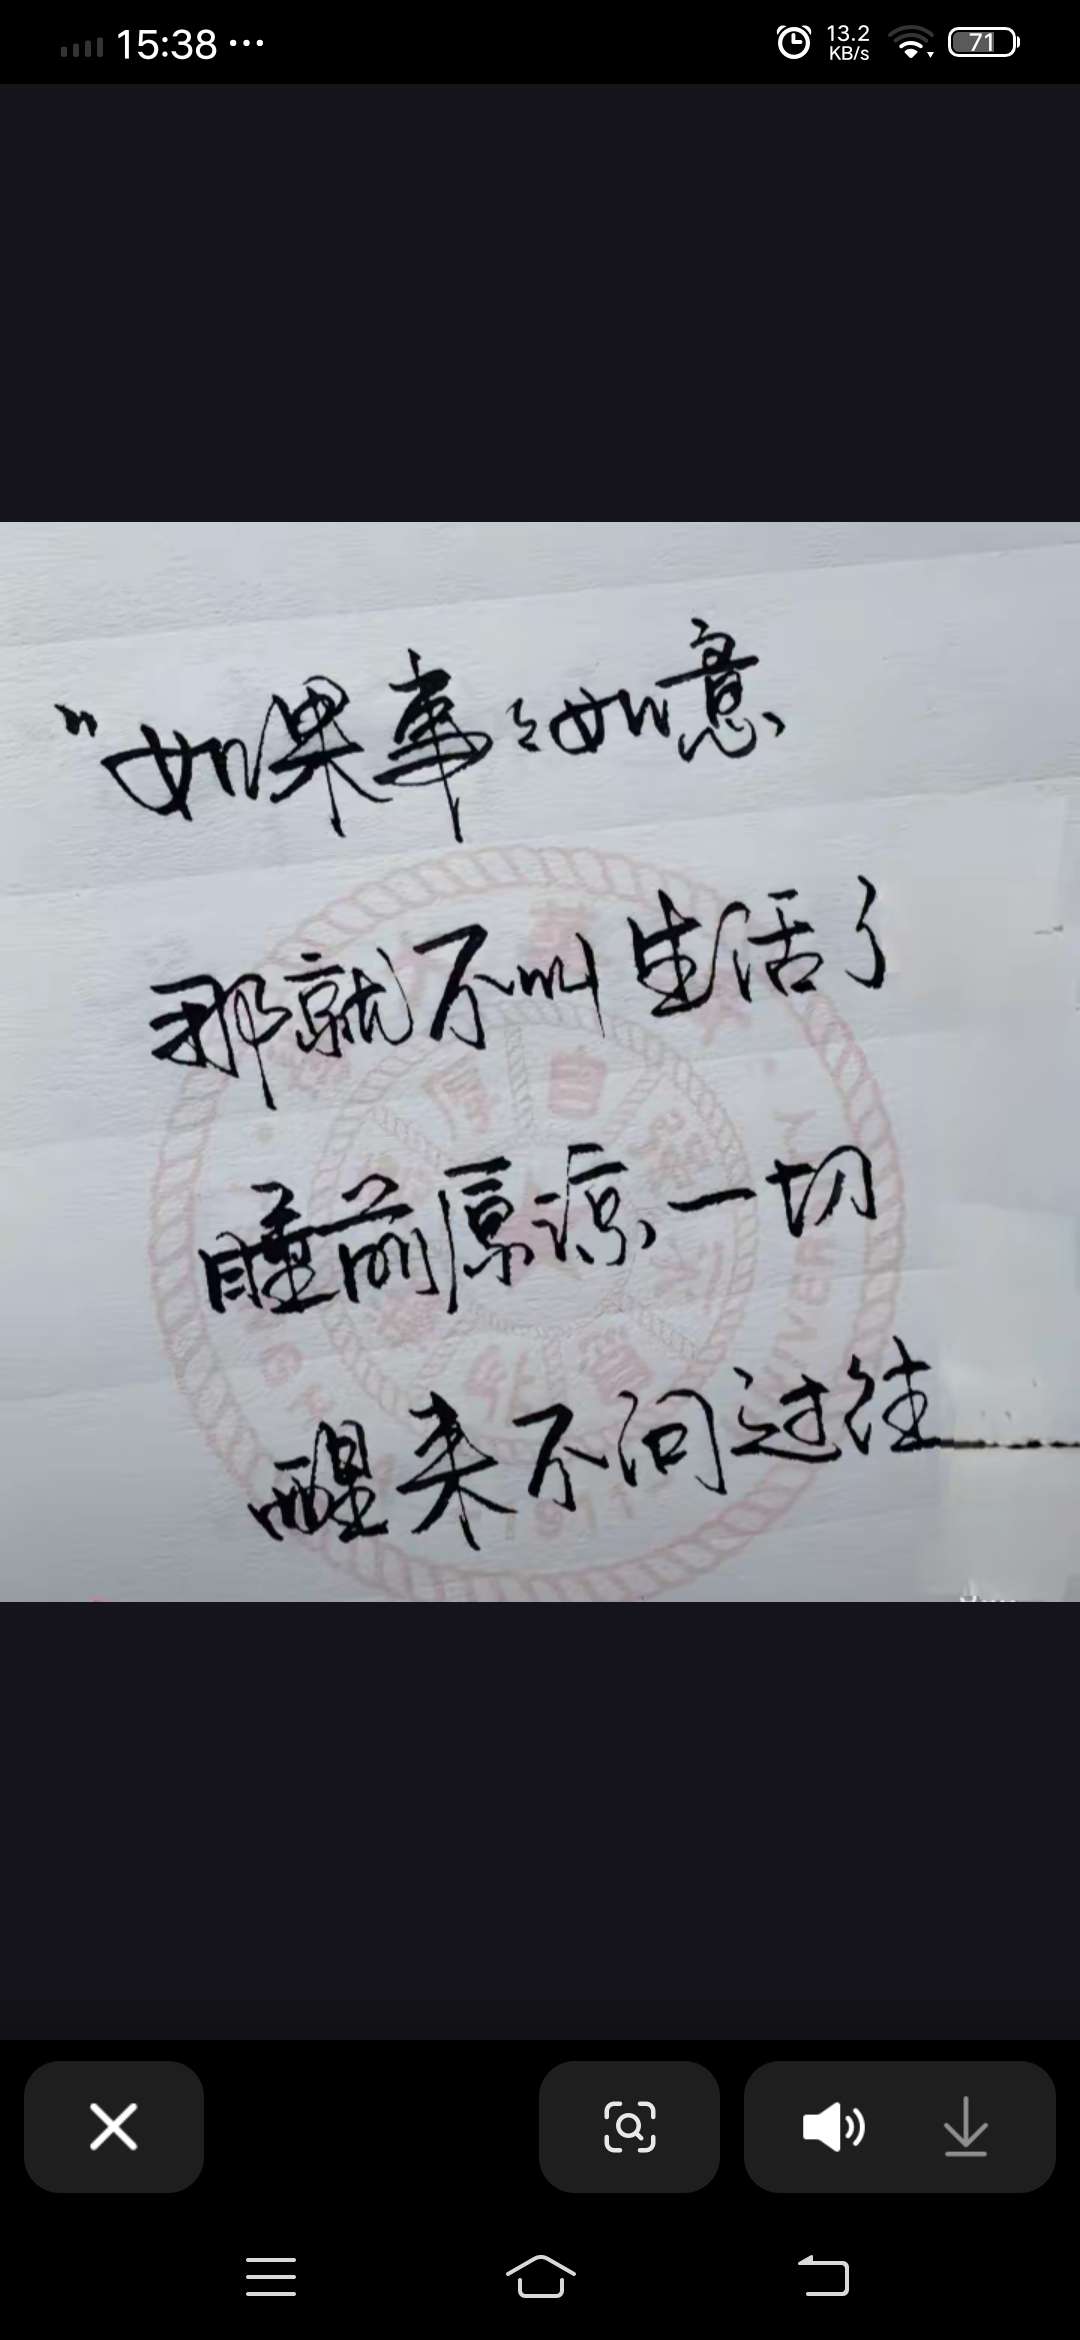 15:38 ...
13.2
KB/s
71
"如果事々如意
那就不叫生活了
睡前原谅一切
醒来不问过往
厚 自
1911